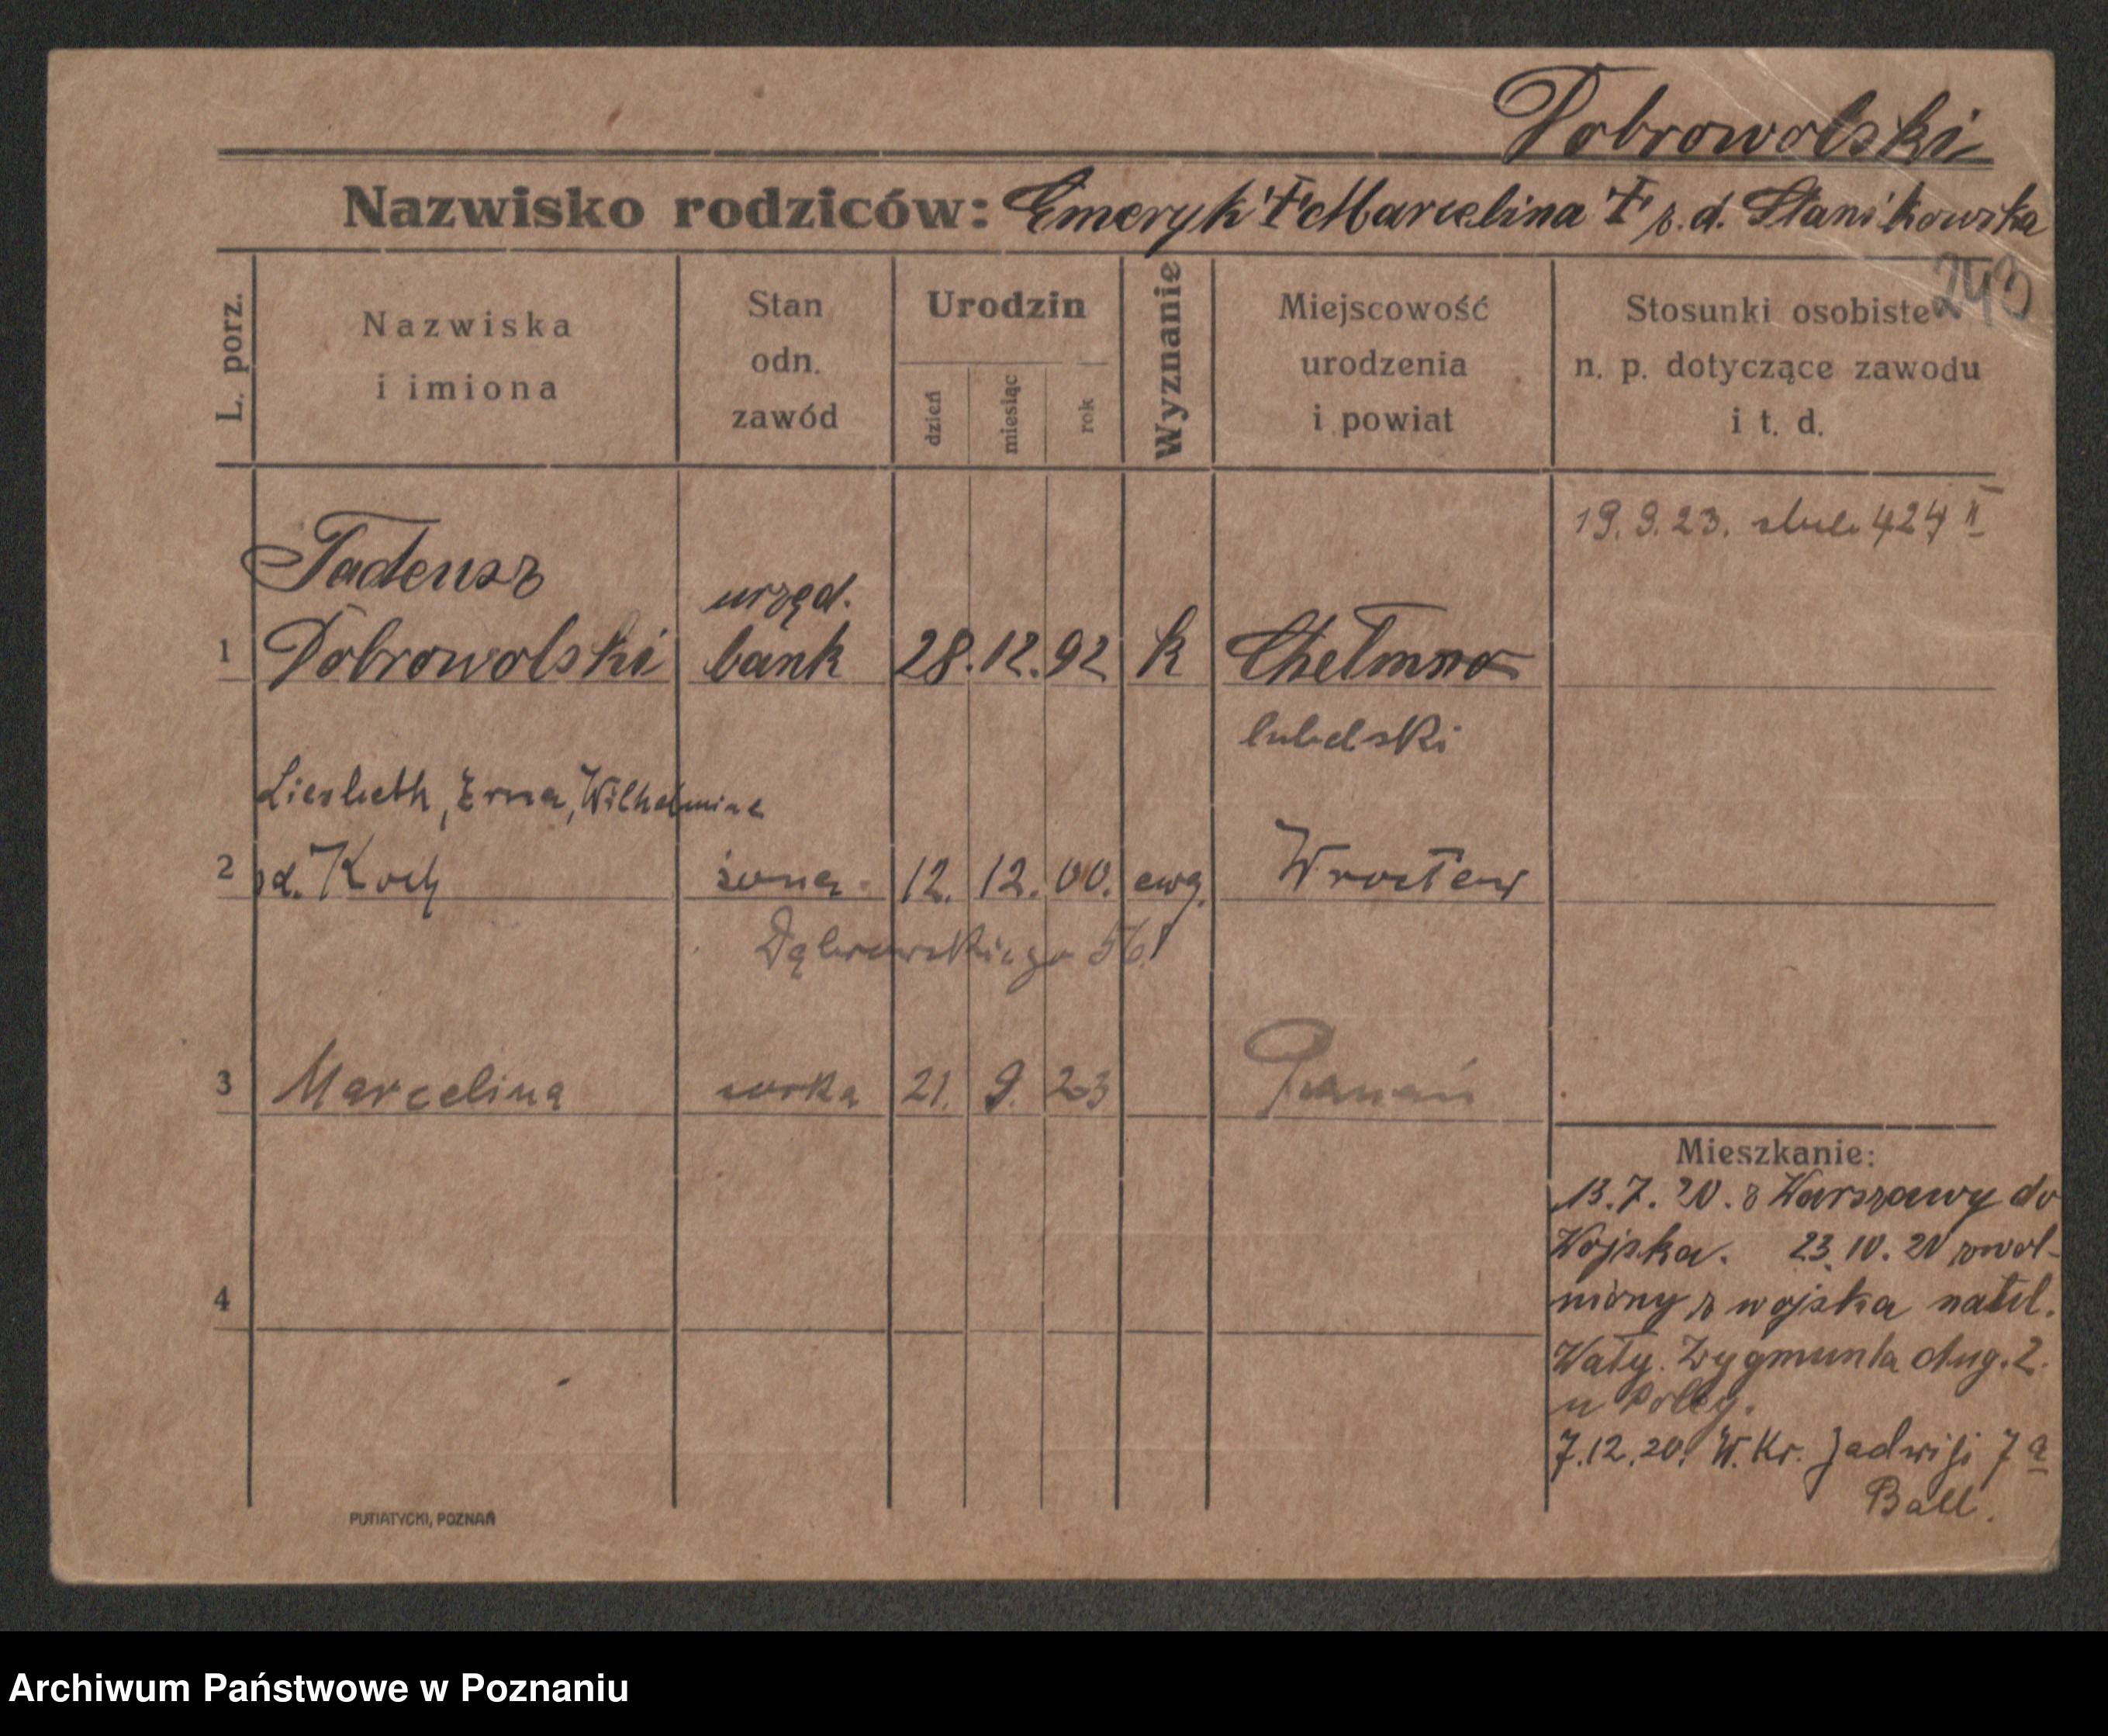 Dobrowolski
Nazwisko rodziców: Emeryk † Marcelina † z. d. Stanikowska
243
L. porz.
Nazwiska
i imiona
Stan
odn.
zawód
Urodzin
dzień
miesiąc
rok
Wyznanie
Miejscowość
urodzenia
i powiat
Stosunki osobiste
n. p. dotyczące zawodu
i t. d.
19. 9. 23. 424 II
Tadeusz
urzęd.
1 Dobrowolski bank 28. 12. 92 k Chełmno
lubelski
Liesbeth, Erna, Wilhelmine
2 zd. Koch żona 12. 12. 00. ewg. Wrocław
Dąbrowskiego 56
3 Marcelina córka 21. 9. 23 Poznań
4
Mieszkanie:
13. 7. 20. z Warszawy do
Wojska. 23. 10. 20 zwol-
niony z wojska
Wały. Zygmunta Aug. 2.
u
7. 12. 20. W. Kr. Jadwigi 7 a
Ball.
PUTIATYCKI, POZNAŃ
Archiwum Państwowe w Poznaniu